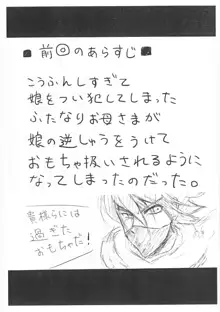 ■ 前◎のあらすじ ■
こうふんしすぎて
娘をつい犯してしまった
ふたなりお母さまが
娘の逆しゅうをうけて
おもちゃ扱いされるように
なってしまったのだった。
貴様らには
過ぎた
おもちゃだ!